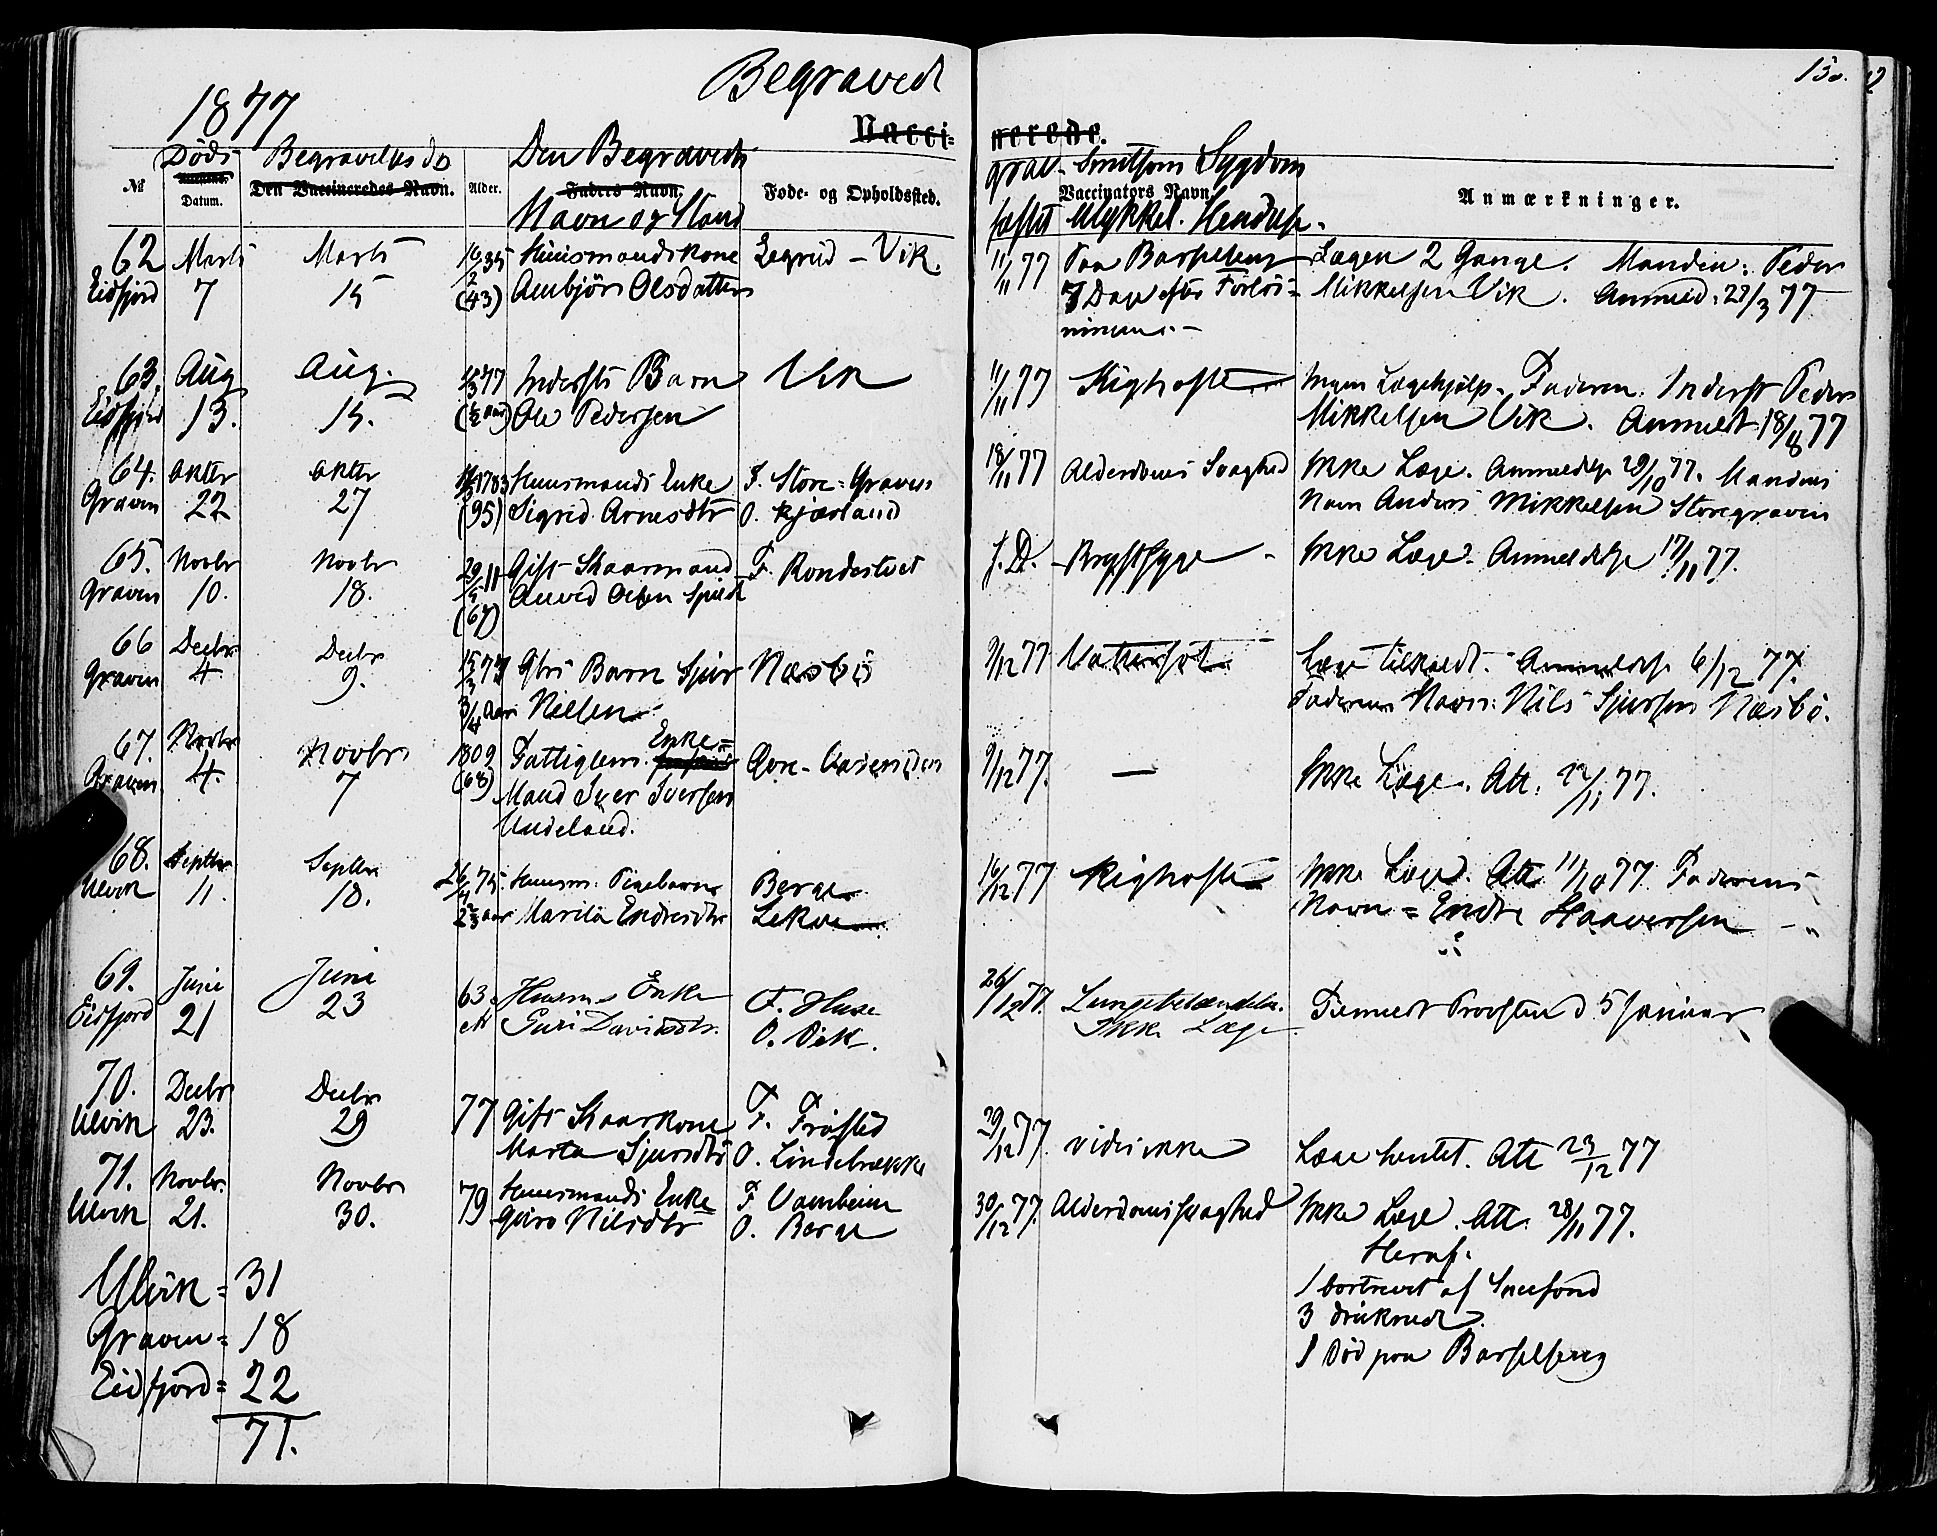 Begraved
150.
1877
Vacci- nerede.
Døds Begravelses do Den Begravedes
No Datum. Den Vaccineredes Navn. Alder. Faders Navn. Føde- og Opholdssted. Vaccinators Navn. Anmærkninger.
Navn og Stand
Smitsom Sygdom
62 Marts Marts 16/2 35 Huusmandskone Legreid - Vik. 11/11 77 Paa Barselseng Lægen 2 Gange. Manden: Peder
Eidfjord 7 15 (43) Ambjør Olsdatter 7 Dage efter Forløs= Mikkelsen Vik. Anmeld. 27/3 77
ningen. -
63. Aug Aug. 77 Inderst's Barn Vik 11/11 77 Kighoste Ingen Lægehjælp. Faderen: Inderst Peder
Eidfjord 13. 15. Ole Pedersen Mikkelsen Vik. Anmeldt 18/8 77
64. Oktbr Oktbr 1783 Huusmands Enke F. Store-Graven 18/11 77 Alderdoms Svaghed Ikke Læge. Anmeldelse 29/10 77. Mandens
Graven 22 27 (95) Sigrid Arnesdtr O. Kjærland Navn Anders Mikkelsen Storegraven
65. Novbr Novbr 29/5 11 Gift Kaarmand F. Rondestvet s. D. Brystsyge - Ikke Læge. Anmeldelse 17/11 77.
Graven 10. 18. Olsen
(67)
66 Decbr Decbr 15/3 77 Gbrs Barn Sjur Næsbø 9/12 77 Læge tilkaldt. Anmeldelse 6/12 77.
Graven 4 9. 3/4 aar Nilsen Faderens Navn: Nils Sjursen Næsbø.
67. Novbr Novbr 1809 Fattiglem Enke= 9/12 77. — Ikke Læge. Att. 22/11 77.
Graven 4. 7 (68) Mand Iver Iversen
Undeland.
68. Septbr Septbr 26/7 75 Huusm. Pigebarn Berge 16/12 77 Kighoste Ikke Læge. Att 11/10 77 Faderens
Ulvik 11. 18. aar Marita Endresdtr Lekve Navn = Endre Haaversen - "
69. Juni Juni 63. Huusm. Enke F. Huse 26/12 77. Lungebetændelse.
Eidfjord 21 23 Guri Davidsdtr. O. Vik. Ikke Læge. Provsten d 5 Januar
70. Decbr Decbr 77 Gift Kaarkone F. Frøsted 29/12 77. vides ikke Læge hentet. Att 23/12 77
Ulvik 23. 29 Marta Sjursdtr O. Lindebrække
71. Novbr. Novbr 79 Huusmands Enke F Vamheim 30/12 77. Alderdomssvaghed Ikke Læge. Att. 28/11 77.
Ulvik 21. 30. Gjøro Nilsdtr O. Berge
Heraf.
Ulvik = 31
1 bortrevet af Sneefond
Graven = 18
3 druknede.
Eidfjord = 22
1 død paa Barselseng
71.